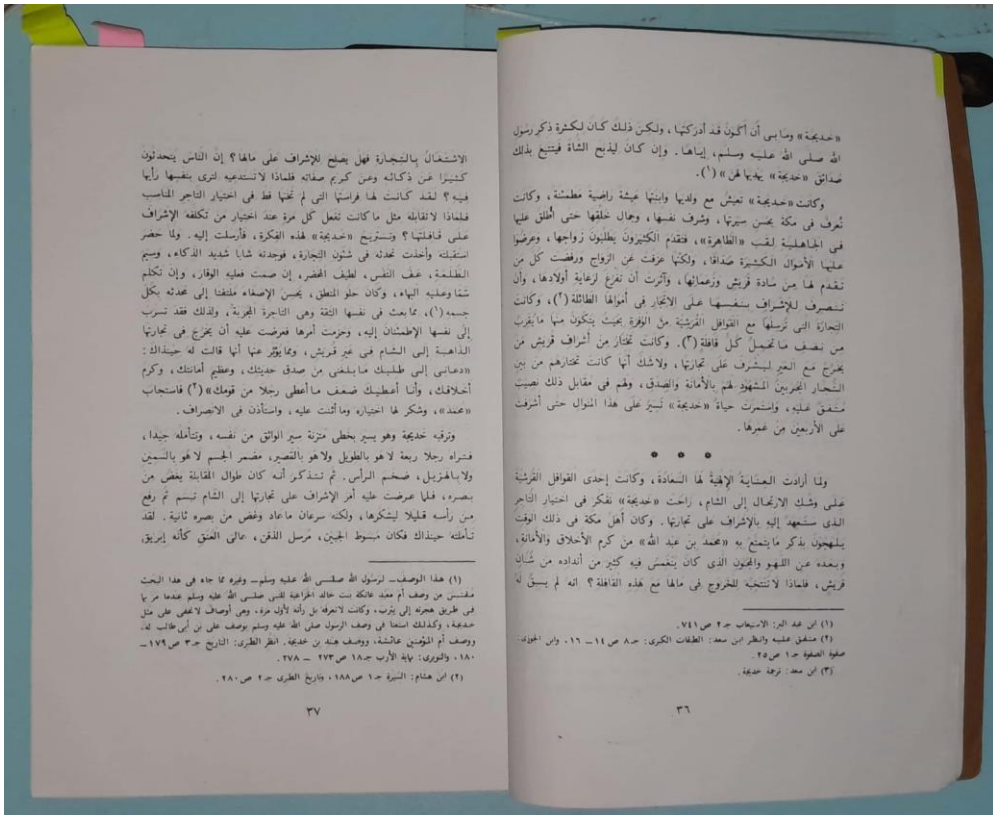 «خديجة» وما بى أن أكون قد أدركتها، ولكن ذلك كان لكثرة ذكر رسول
الله صلى الله عليه وسلم، إياها. وإن كان ليذبح الشاة فيتتبع بذلك
صدائق «خديجة» يهديها لهن» (١).
وكانت «خديجة» تعيش مع ولديها وابنتها عيشة راضية مطمئنة، وكانت
تُعرف فى مكة بحسن سيرتها، وشرف نفسها، وجمال خلقها حتى أُطلق عليها
فى الجاهلية لقب «الطاهرة»، فتقدم الكثيرون يطلبون زواجها، وعرضوا
عليها الأموال الكثيرة صداقا، ولكنها عزفت عن الزواج ورفضت كل من
تقدم لها من سادة قريش وزعمائها، وآثرت أن تفرغ لرعاية أولادها، وأن
تنصرف للإشراف بنفسها على الاتجار فى أموالها الطائلة (٢)، وكانت
التجارة التى ترسلها مع القوافل القرشية من الوفرة بحيث يتكون منها مايقرب
من نصف ماتحمل كل قافلة (٣). وكانت تختار من أشراف قريش من
يخرج مع العير ليشرف على تجارتها، ولاشك أنها كانت تختارهم من بين
التجار المجربين المشهود لهم بالأمانة والصدق، ولهم فى مقابل ذلك نصيب
متفق عليه، واستمرت حياة «خديجة» تسير على هذا المنوال حتى أشرفت
على الأربعين من عمرها.
* * *
ولما أرادت العناية الإلهية لها السعادة، وكانت إحدى القوافل القرشية
على وشك الارتحال إلى الشام، راحت «خديجة» تفكر فى اختيار التاجر
الذى ستعهد إليه بالإشراف على تجارتها. وكان أهل مكة فى ذلك الوقت
يلهجون بذكر مايتمتع به «محمد بن عبد الله» من كرم الأخلاق والأمانة،
وبعده عن اللهو والمجون الذى كان ينغمس فيه كثير من أنداده من شبان
قريش، فلماذا لاتنتخبه للخروج فى مالها مع هذه القافلة؟ انه لم يسبق له
(١) ابن عبد البر: الاستيعاب جـ ٢ ص ٧٤١.
(٢) متفق عليه وانظر ابن سعد: الطبقات الكبرى: جـ ٨ ص ١٤ – ١٦، وابن الجوزى:
صفوة الصفوة جـ ١ ص ٢٥.
(٣) ابن سعد: ترجمة خديجة.
٣٦
الاشتغال بالتجارة فهل يصلح للإشراف على مالها؟ إن الناس يتحدثون
كثيرا عن ذكائه وعن كريم صفاته فلماذا لاتستدعيه لترى بنفسها رأيها
فيه؟ لقد كانت لها فراستها التى لم تخنها قط فى اختيار التاجر المناسب
فلماذا لاتقابله مثل ماكانت تفعل كل مرة عند اختيار من تكلفه الإشراف
على قافلتها؟ وتستريح «خديجة» لهذه الفكرة، فأرسلت إليه. ولما حضر
استقبلته وأخذت تحدثه فى شئون التجارة، فوجدته شابا شديد الذكاء، وسيم
الطلعة، عف النفس، لطيف المحضر، إن صمت فعليه الوقار، وإن تكلم
سما وعليه البهاء، وكان حلو المنطق، يحسن الإصغاء ملتفتا إلى محدثه بكل
جسمه (١)، مما بعث فى نفسها الثقة وهى التاجرة المجربة، ولذلك فقد تسرب
إلى نفسها الإطمئنان إليه، وحزمت أمرها فعرضت عليه أن يخرج فى تجارتها
الذاهبة إلى الشام فى عير قريش، ومما يؤثر عنها أنها قالت له حينذاك:
«دعانى إلى طلبك مابلغنى من صدق حديثك، وعظيم أمانتك، وكرم
أخلاقك، وأنا أعطيك ضعف ماأعطى رجلا من قومك» (٢) فاستجاب
«محمد»، وشكر لها اختياره وماأثنت عليه، واستأذن فى الانصراف.
وترقبه خديجة وهو يسير بخطى متزنة سير الواثق من نفسه، وتتأمله جيدا،
فتراه رجلا ربعة لاهو بالطويل ولاهو بالقصير، مضمر الجسم لاهو بالسمين
ولابالهزيل، ضخم الرأس. ثم تتذكر أنه كان طوال المقابلة يغض من
بصره، فلما عرضت عليه أمر الإشراف على تجارتها إلى الشام تبسم ثم رفع
من رأسه قليلا ليشكرها، ولكنه سرعان ماعاد وغض من بصره ثانية. لقد
تأملته حينذاك فكان مبسوط الجبين، مرسل الذقن، عالى العنق كأنه إبريق
(١) هذا الوصف – لرسول الله صلى الله عليه وسلم – وغيره مما جاء فى هذا البحث
مقتبس من وصف أم معبد عاتكة بنت خالد الخزاعية للنبى صلى الله عليه وسلم عندما مر بها
فى طريق هجرته إلى يثرب، وكانت لاتعرفه بل رأته لأول مرة، وهى أوصاف لاتخفى على مثل
خديجة، وكذلك استعنا فى وصف الرسول صلى الله عليه وسلم بوصف على بن أبى طالب له،
ووصف أم المؤمنين عائشة، ووصف هند بن خديجة. انظر الطبرى: التاريخ جـ ٣ ص ١٧٩ –
١٨٠، والنويرى: نهاية الأرب جـ ١٨ ص ٢٧٣ – ٢٧٨.
(٢) ابن هشام: السيرة جـ ١ ص ١٨٨، وتاريخ الطبرى جـ ٢ ص ٢٨٠.
٣٧